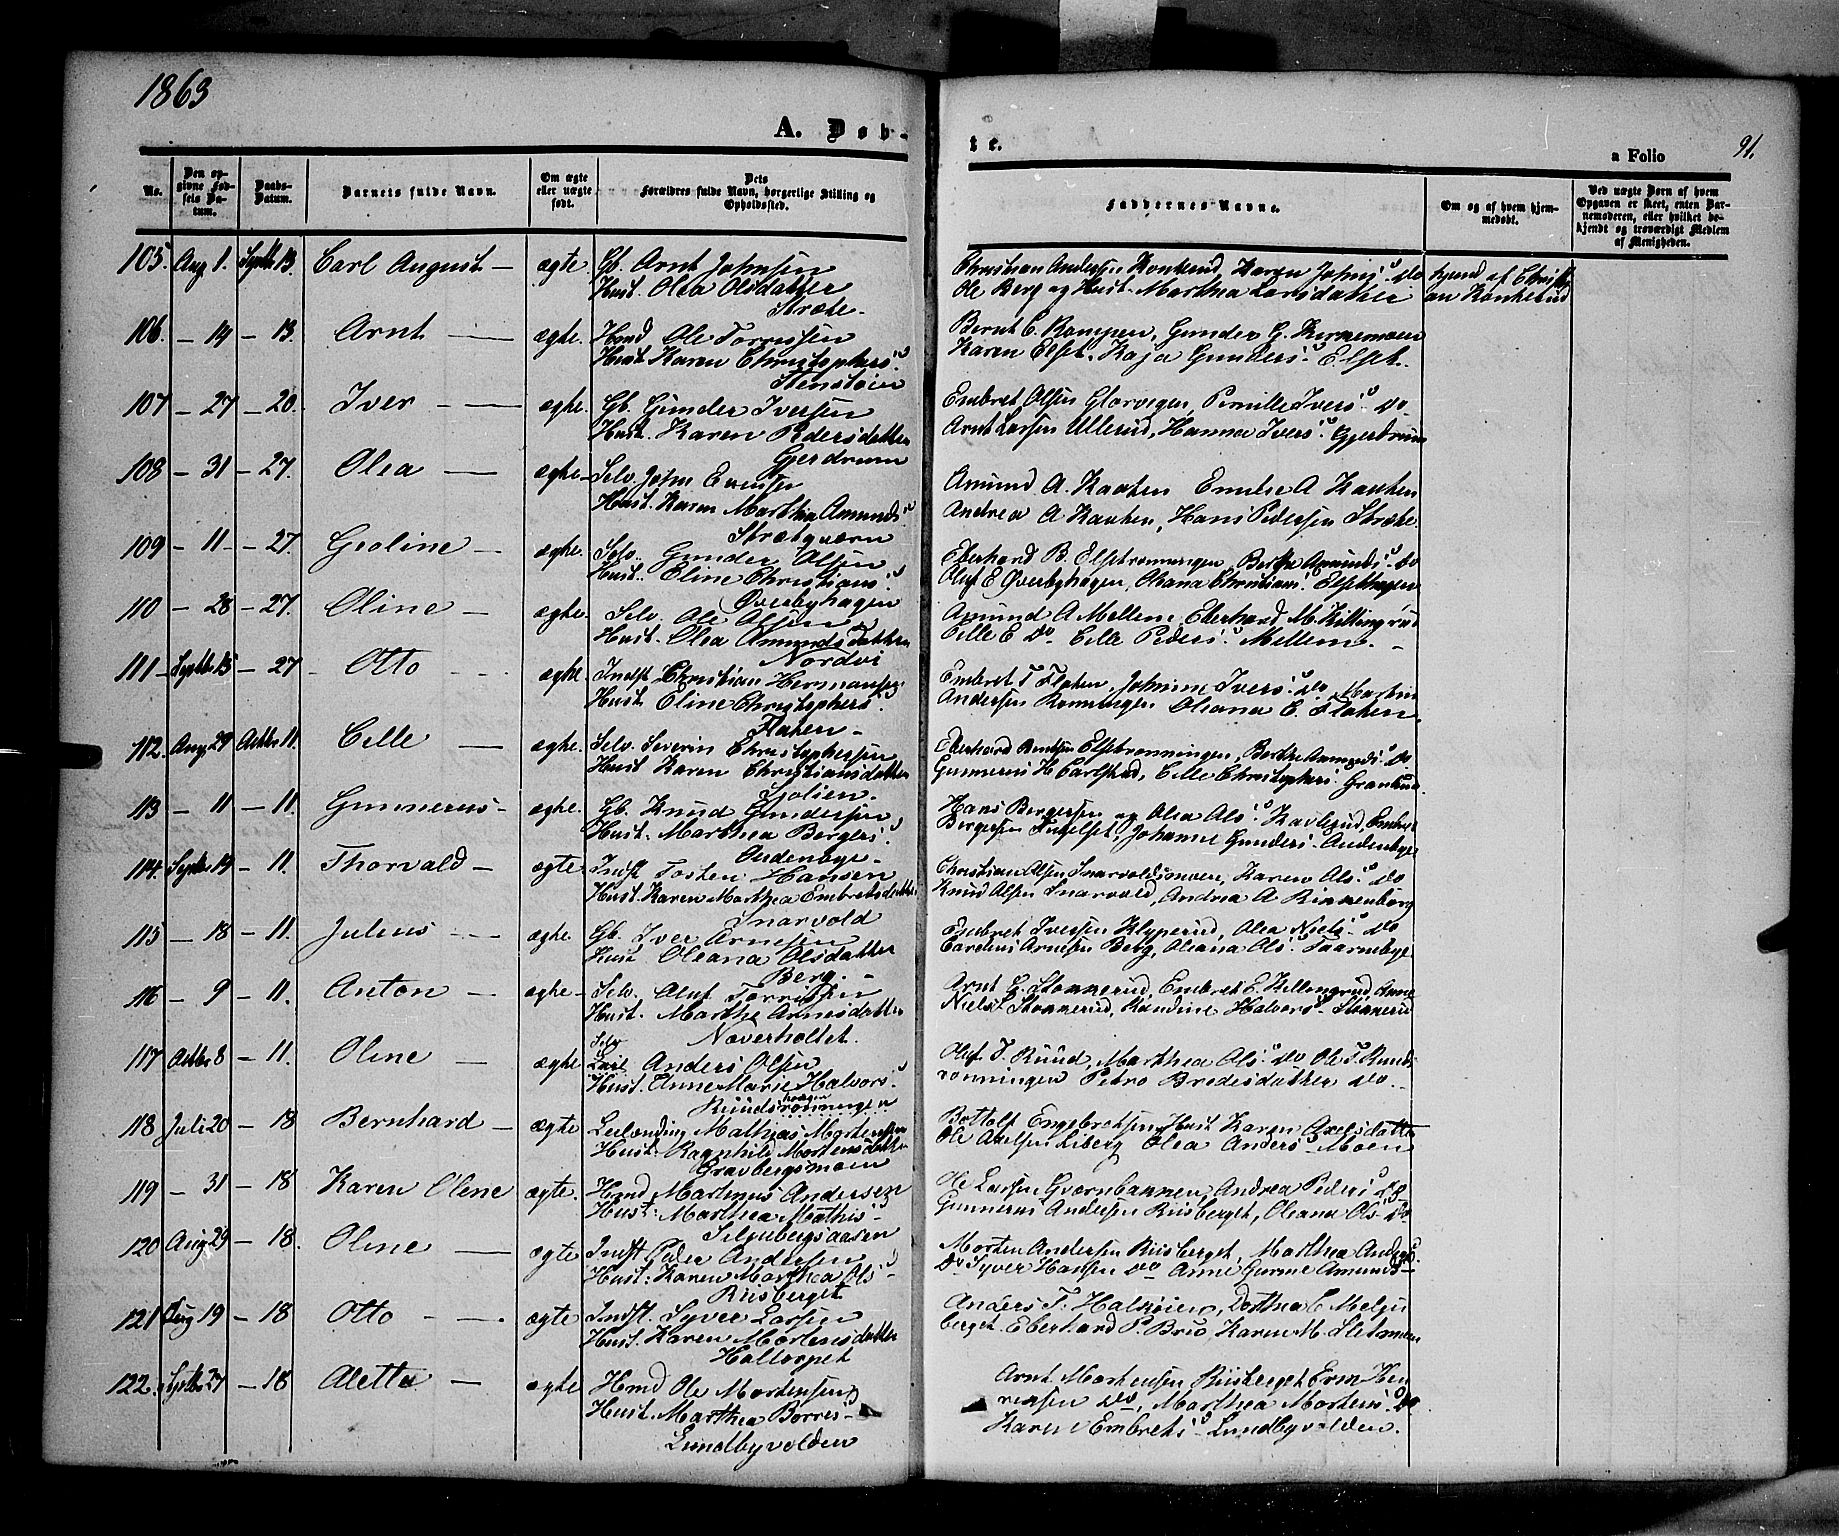 1863
A. Døb-
te.
a Folio
91.
No.
Den op-
givne Fød-
sels Da-
tum.
Daabs-
Datum.
Barnets fulde Navn.
Om ægte
eller uægte
født.
Dets
Forældres fulde Navn, borgerlige Stilling og
Opholdssted.
Faddernes Navne.
Om og af hvem hjem-
medøbt.
Ved uægte Børn af hvem
Opgaven er skeet, enten Bar-
nemoderen, eller hvilket be-
kjendt og troværdigt Medlem
af Menigheden.
105. Aug 1. Septbr 13. Carl August — ægte Gb. Arnt Johnsen
Hust. Olea Olsdatter
Stræte.
Christian Andersen Konkerud, Karen Johns: Do
Ole Berg og Hust. Marthea Larsdatter
hjemd af Christi-
an Konkerud
106. — 14 — 13. Arnt — ægte. Hmd Ole Torressen
Hust. Karen Christophers:
Stenstøien
Bernt E. Rompen, Gunder G. Kirkemoen
Karen Elset, Kaja Gunders: Elset.
107 — 27 — 20. Iver — ægte. Gb. Gunder Iversen
Hust. Karen Pedersdatter
Gjerdrum
Embret Olsen Glorvigen, Pernille Ivers: Do
Arnt Larsen Ullerud, Hanna Ivers: Gjerdrum
108 — 31 — 27. Olea — ægte Selv. John Evensen
Hust. Karen Marthia Amunds:
Strætqværn
Amund A. Kaaten Emilie A Kaaten
Andrea A Kaaten, Hans Pedersen Stræte
109 — 11 — 27. Groline — ægte. Selv. Gunder Olsen
Hust. Eline Christians:
Øverbyhagen
Eberhard B. Elsetrønningen, Berthe Amunds: Do
Oluf E Øverbyhagen, Oleana Christians: Elsethagen
110 — 28 — 27. Oline — ægte. Selv. Ole Olsen
Hust. Olea Amundsdatter
Nordvi
Amund A Mellem, Eberhard M. Killingrud
Eille E Do Eille Peders: Mellem.
111 — Septbr 15 — 27 Otto ægte. Indst Christian Hermansen
Hust. Eline Christophers:
Flaten.
Embret T Flaten, Johanne Ivers: Do Martin
Andersen Rønningen Oleana E. Flaten.
112. Aug 29 Octbr 11. Eille — ægte. Selv. Severin Christophersen
Hust Karen Christiansdatter
Sjolien.
Eberhard Berntsen Elsetrønningen, Berthe Amunds: Do
Gunnerus H Carlstad, Eille Christophers: Granlund
113 — 11 — 11. Gunnerus — ægte. Gb. Knud Gundersen
Hust. Marthea Bergers:
Oudenbye
Hans Bergersen og Olea Ols: Kavlerud, Embret
Bergersen Fuglset, Johanne Gunders: Oudenbye
114. Septbr 14 — 11. Thorvald — ægte Indst Tosten Hansen
Hust. Karen Marthea Embretsdatter
Snarvold
Christian Olsen Snarvoldsmoen, Karen Ols: Do
Knud Olsen Snarvold, Andrea A Kinnenberg
115 — 18 — 11. Julius — ægte. Gb. Iver Arnesen
Hust Oleana Olsdatter
Berg.
Embret Iversen Klyperud, Olea Niels: Do
Carolius Arnesen Berg, Oleana Ols: Taarnebye
116 — 9 — 11. Anton — ægte Selv. Oluf Torresen
Hust. Marthe Arnesdatter
Næverholtet.
Arnt G. Stommerud, Embret E. Killengrud, Anne
Niels: Stommerud, Kandine Halvors: Stommerud
117 Octbr 8 — 11. Oline — ægte Selv Anders Olsen
Hust. Anne Marie Halvors:
Ruudsrønningen
Oluf T. Ruud, Marthea Ols: Do Ole T. Ruuds-
rønningen Petro Bredesdatter Do.
118 Juli 20 — 18 Bernhard — ægte Leilænding Mathias Mortensen
Hust. Ragnhild Mortensdatter
Gravbergsmoen
Bottolf Engebretsen, Hust Karen Axelsdatter
Ole Axelsen Liberg Olea Anders: Moen
119 — 31 — 18 Karen Oline ægte. Hmd Martinus Andersen
Hust. Marthea Mathis-
Seljebergsaasen
Ole Larsen Qværnbannen, Andrea Peders: Do
Gunnerus Andersen Riisberget, Oleana Ols: Do
120 Aug 29 — 18. Oline — ægte Indst Peder Andersen
Hust: Karen Marthea Ols-
Riisberget
Morten Andersen Riisberget, Marthea Anders:
Do Syver Hansen Do Anne Gurine Amunds:
121 Aug 19 — 18 Otto — ægte Indst. Syver Larsen
Hust. Karen Mortensdatter
Haltorpet
Anders T. Halsjøien, Dorthea E Meljn-
berget. Eberhard P. Bru, Karen M. Sletmoen
122. Septbr 27 — 18 Aletta — ægte Hmd Ole Mortensen
Hust. Marthea Borres-
Lundbyvolden
Arnt Mortensen Riisberget Even Hen-
riksen Do, Marthea Mortens: Do
Karen Embrets: Lundbyvolden.